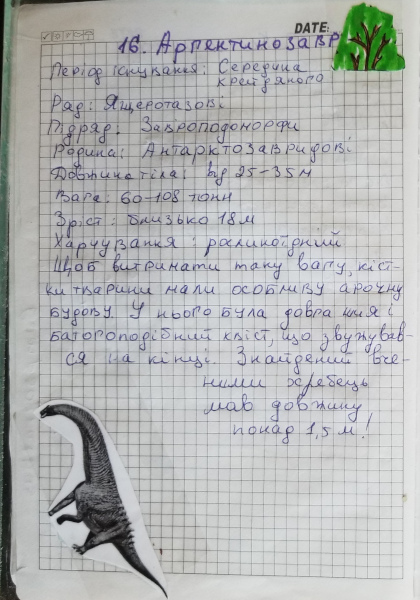 DATE:
16. Аргентинозавр
Період існування: Середина
крейдяного
Ряд: Ящеротазові
Підряд: Завроподоморфи
Родина: Антарктозавридові
Довжина тіла: від 25-35м
Вага: 60-108 тонн
Зріст: близько 18м
Харчування: рослиноїдний
Щоб витримати таку вагу, кіст-
ки тварини мали особливу арочну
будову. У нього була довга шия і
батогоподібний хвіст, що звужував-
ся на кінці. Знайдений вче-
ними хребець
мав довжину
понад 1,5 м!